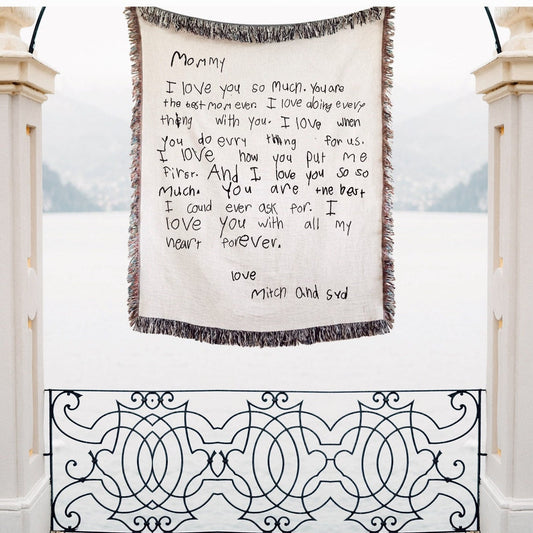 Mommy
I love you so much. You are
the best mom ever. I love doing every
thing with you. I love when
you do evry thing for us.
I love how you put me
first. And I love you so so
much. You are the best
I could ever ask for. I
love you with all my
heart forever.
love
Mitch and Syd